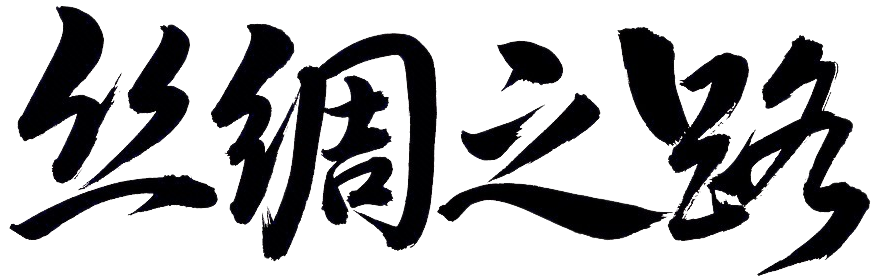 丝绸之路